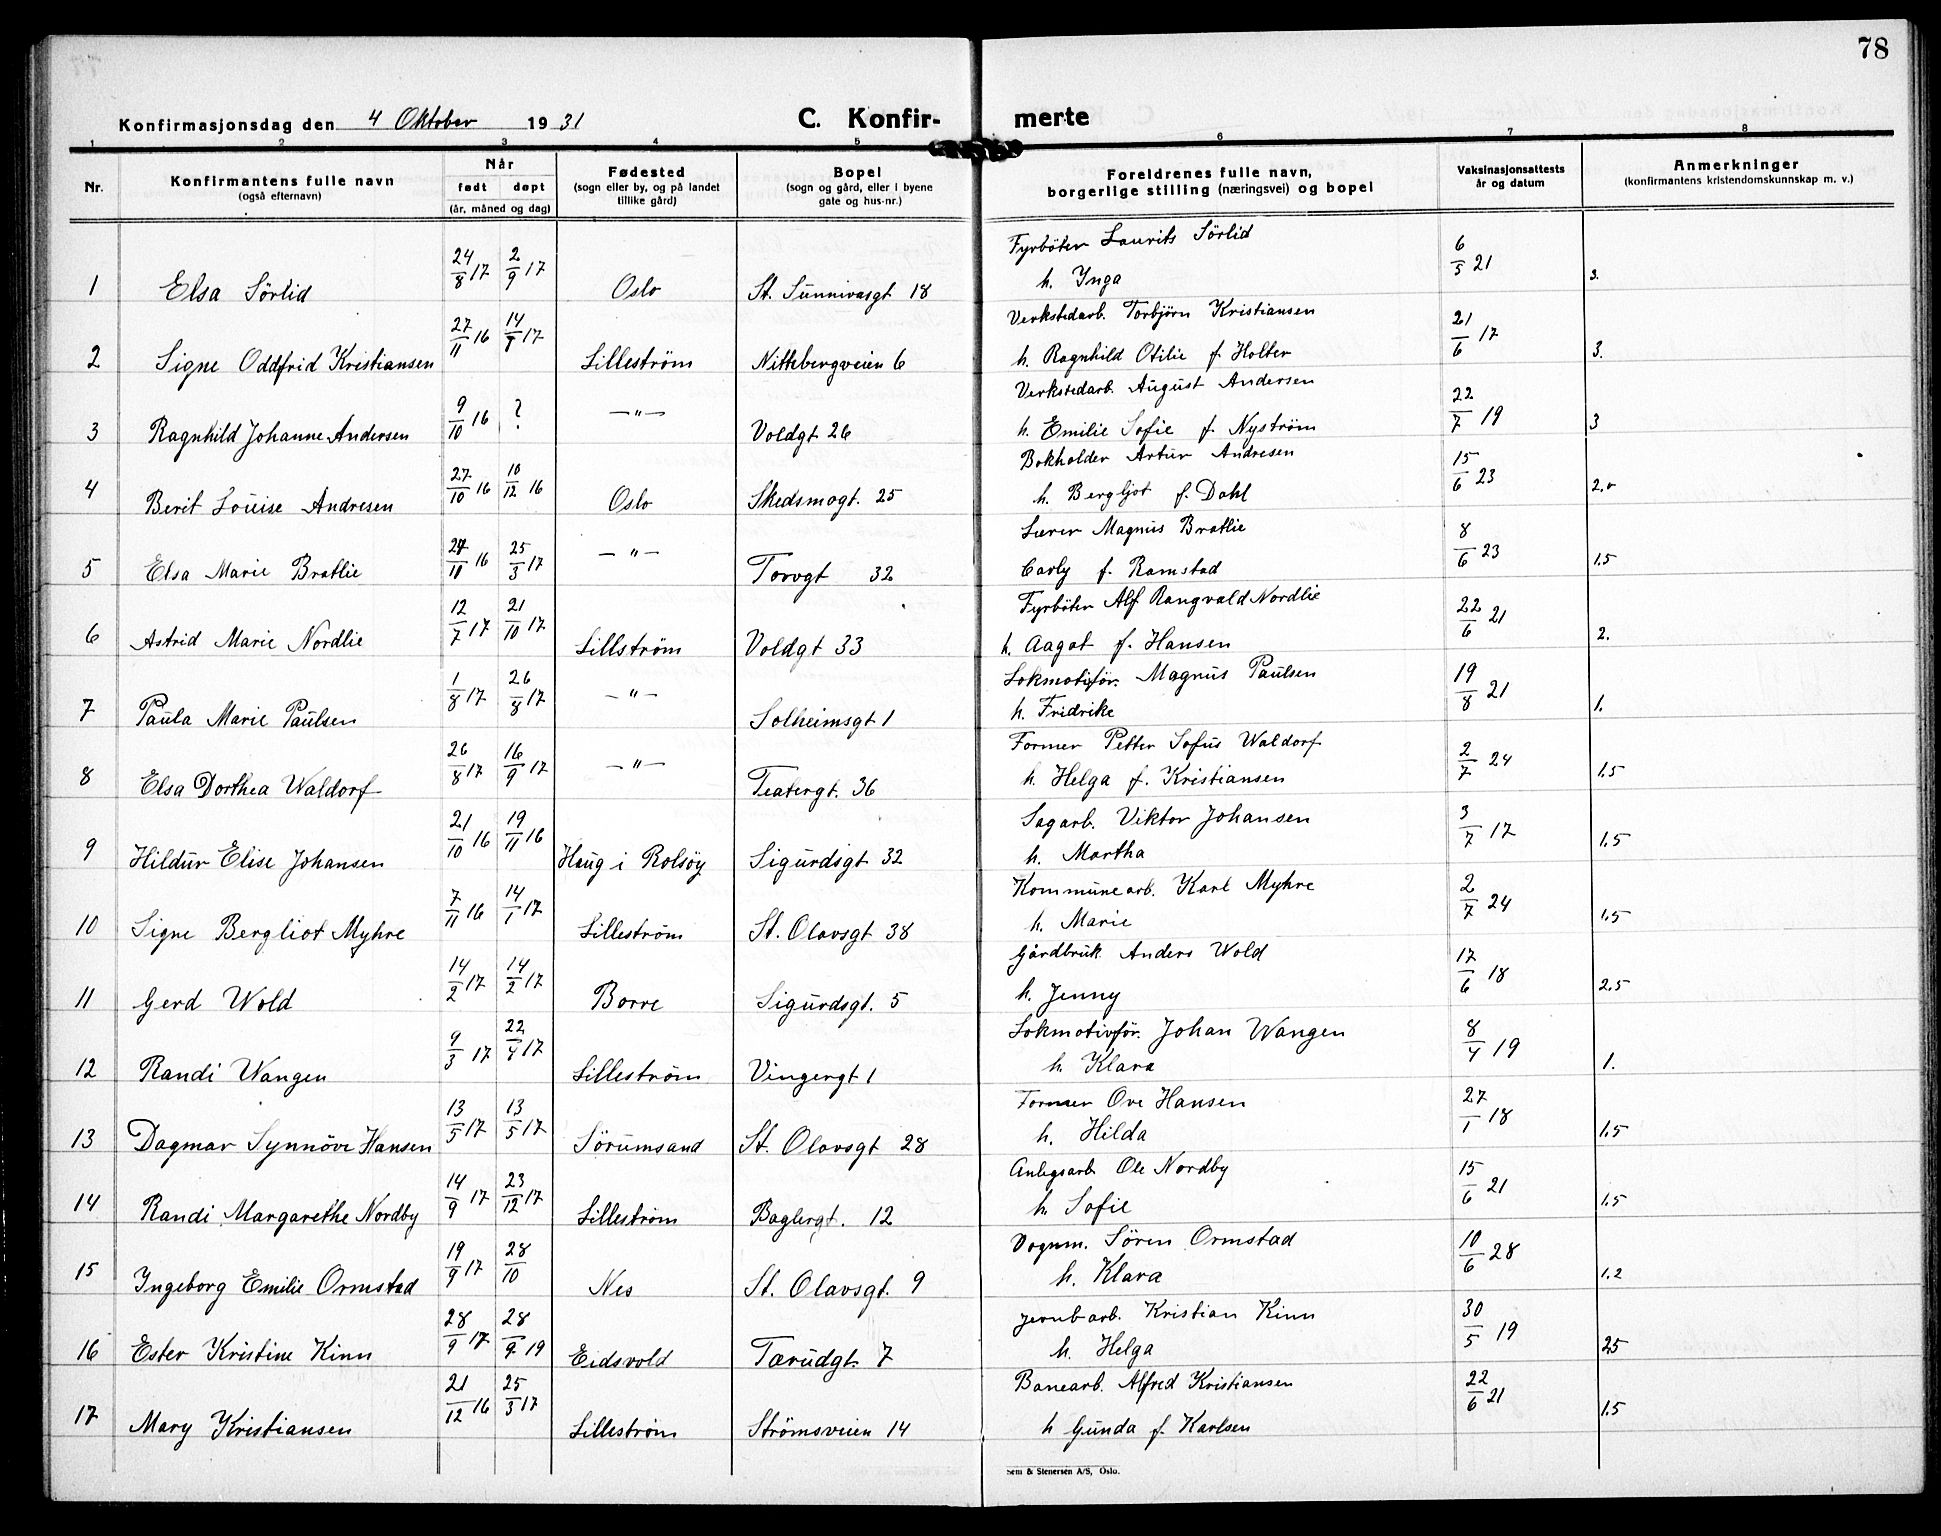 78
Konfirmasjonsdag den 4 Oktober 1931 C. Konfir- merte
1 2 3 4 5 6 7 8
Nr. Konfirmantens fulle navn (også efternavn) Når født døpt (år, måned og dag) Fødested (sogn eller by, og på landet tillike gård) Bopel (sogn og gård, eller i byene gate og hus-nr.) Foreldrenes fulle navn, borgerlige stilling (næringsvei) og bopel Vaksinasjonsattests år og datum Anmerkninger (konfirmantens kristendomskunnskap m. v.)
1 Elsa Sörlid 24/8 17 2/9 17 Oslo St. Sunnivasgt 18 Fyrböter Laurits Sörlid h. Inga 6/5 21 3.
2 Signe Oddfrid Kristiansen 27/11 16 14/1 17 Lilleström Nittebergveien 6 Verkstedarb. Torbjörn Kristiansen h. Ragnhild Otilie f. Holter 21/6 17 3.
3 Ragnhild Johanne Andersen 9/10 16 ? —"— Voldgt 26 Verkstedarb. August Andersen h. Emilie Sofie f. Nyström 22/7 19 3
4 Berit Louise Andresen 27/10 16 10/12 16 Oslo Skedsmogt. 25 Bokholder Artur Andresen h. Bergljot f. Dahl 15/6 23 2.0
5 Elsa Marie Bratlie 27/11 16 25/3 17 —"— Torvgt 32 Lærer Magnus Bratlie Carly f. Ramstad 8/6 23 1.5
6 Astrid Marie Nordlie 12/7 17 21/10 17 Lillström Voldgt 33 Fyrböter Alf Rangvald Nordlie h. Aagot f. Hansen 22/6 21 2.
7 Paula Marie Paulsen 1/8 17 26/8 17 —"— Solheimsgt 1 Lokmotivför. Magnus Paulsen h. Fridrike 19/8 21 1.
8 Elsa Dorthea Waldorf 26/8 17 16/9 17 —"— Teatergt. 36 Former Petter Sofus Waldorf h. Helga f. Kristiansen 2/7 24 1.5
9 Hildur Elise Johansen 21/10 16 19/11 16 Haug i Rolsöy Sigurdsgt 32 Sagarb. Viktor Johansen h. Martha 3/7 17 1.5
10 Signe Bergliot Myhre 7/11 16 14/1 17 Lilleström St. Olavsgt 38 Kommunearb. Karl Myhre h. Marie 2/7 24 1.5
11 Gerd Wold 14/2 17 14/2 17 Borre Sigurdsgt. 5 Gårdbruk. Anders Wold h. Jenny 17/6 18 2.5
12 Randi Wangen 9/3 17 22/4 17 Lilleström Vingergt 1 Lokmotivför. Johan Wangen h. Klara 8/4 19 1.
13 Dagmar Synnöve Hansen 13/5 17 13/5 17 Sörumsand St. Olavsgt 28 Former Ove Hansen h. Hilda 27/1 18 1.5
14 Randi Margarethe Nordby 14/9 17 23/12 17 Lilleström Baglergt. 12 Anlegsarb. Ole Nordby h. Sofie 15/6 21 1.5
15 Ingeborg Emilie Ormstad 19/9 17 28/10 Nes St. Olavsgt. 9 Vognm. Sören Ormstad h. Klara 10/6 28 1.2
16 Ester Kristine Kinn 28/9 17 28/9 19 Eidsvold Tærudgt. 7 Jernbarb. Kristian Kinn h. Helga 30/5 19 25
17 Mary Kristiansen 21/12 16 25/3 17 Lilleström Strömsveien 14 Banearb. Alfred Kristiansen h Gunda f. Karlsen 22/6 21 1.5
Sem & Stenersen A/S, Oslo.